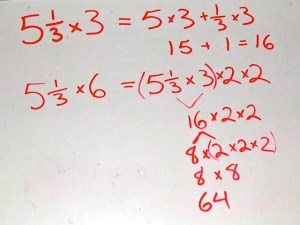 5 1/3 × 3 = 5 × 3 + 1/3 × 3
15 + 1 = 16
5 1/3 × 6 = (5 1/3 × 3) × 2 × 2
16 × 2 × 2
8 × (2 × 2 × 2)
8 × 8
64